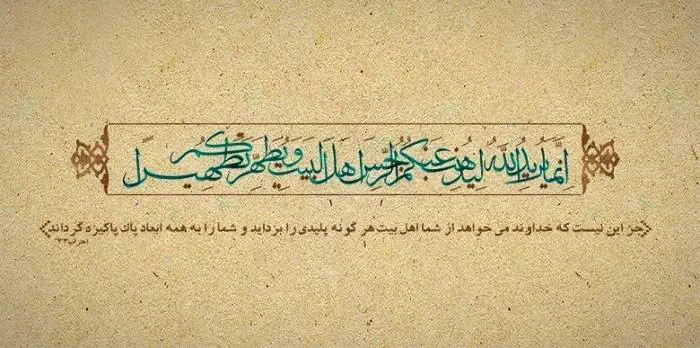 إنما يريد الله ليذهب عنكم الرجس أهل البيت ويطهركم تطهيرا
«جز این نیست که خداوند می خواهد از شما اهل بیت هر گونه پلیدی را بزداید و شما را به همه ابعاد پاک پاکیزه گرداند»
احزاب۳۳